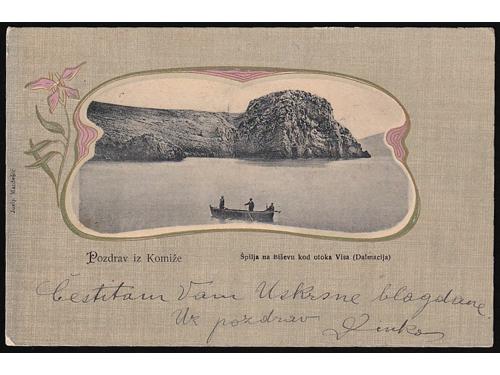 Pozdrav iz Komiže
Špilja na Biševu kod otoka Visa (Dalmacija)
Čestitam Vam Uskrsne blagdane
Uz pozdrav Dinko